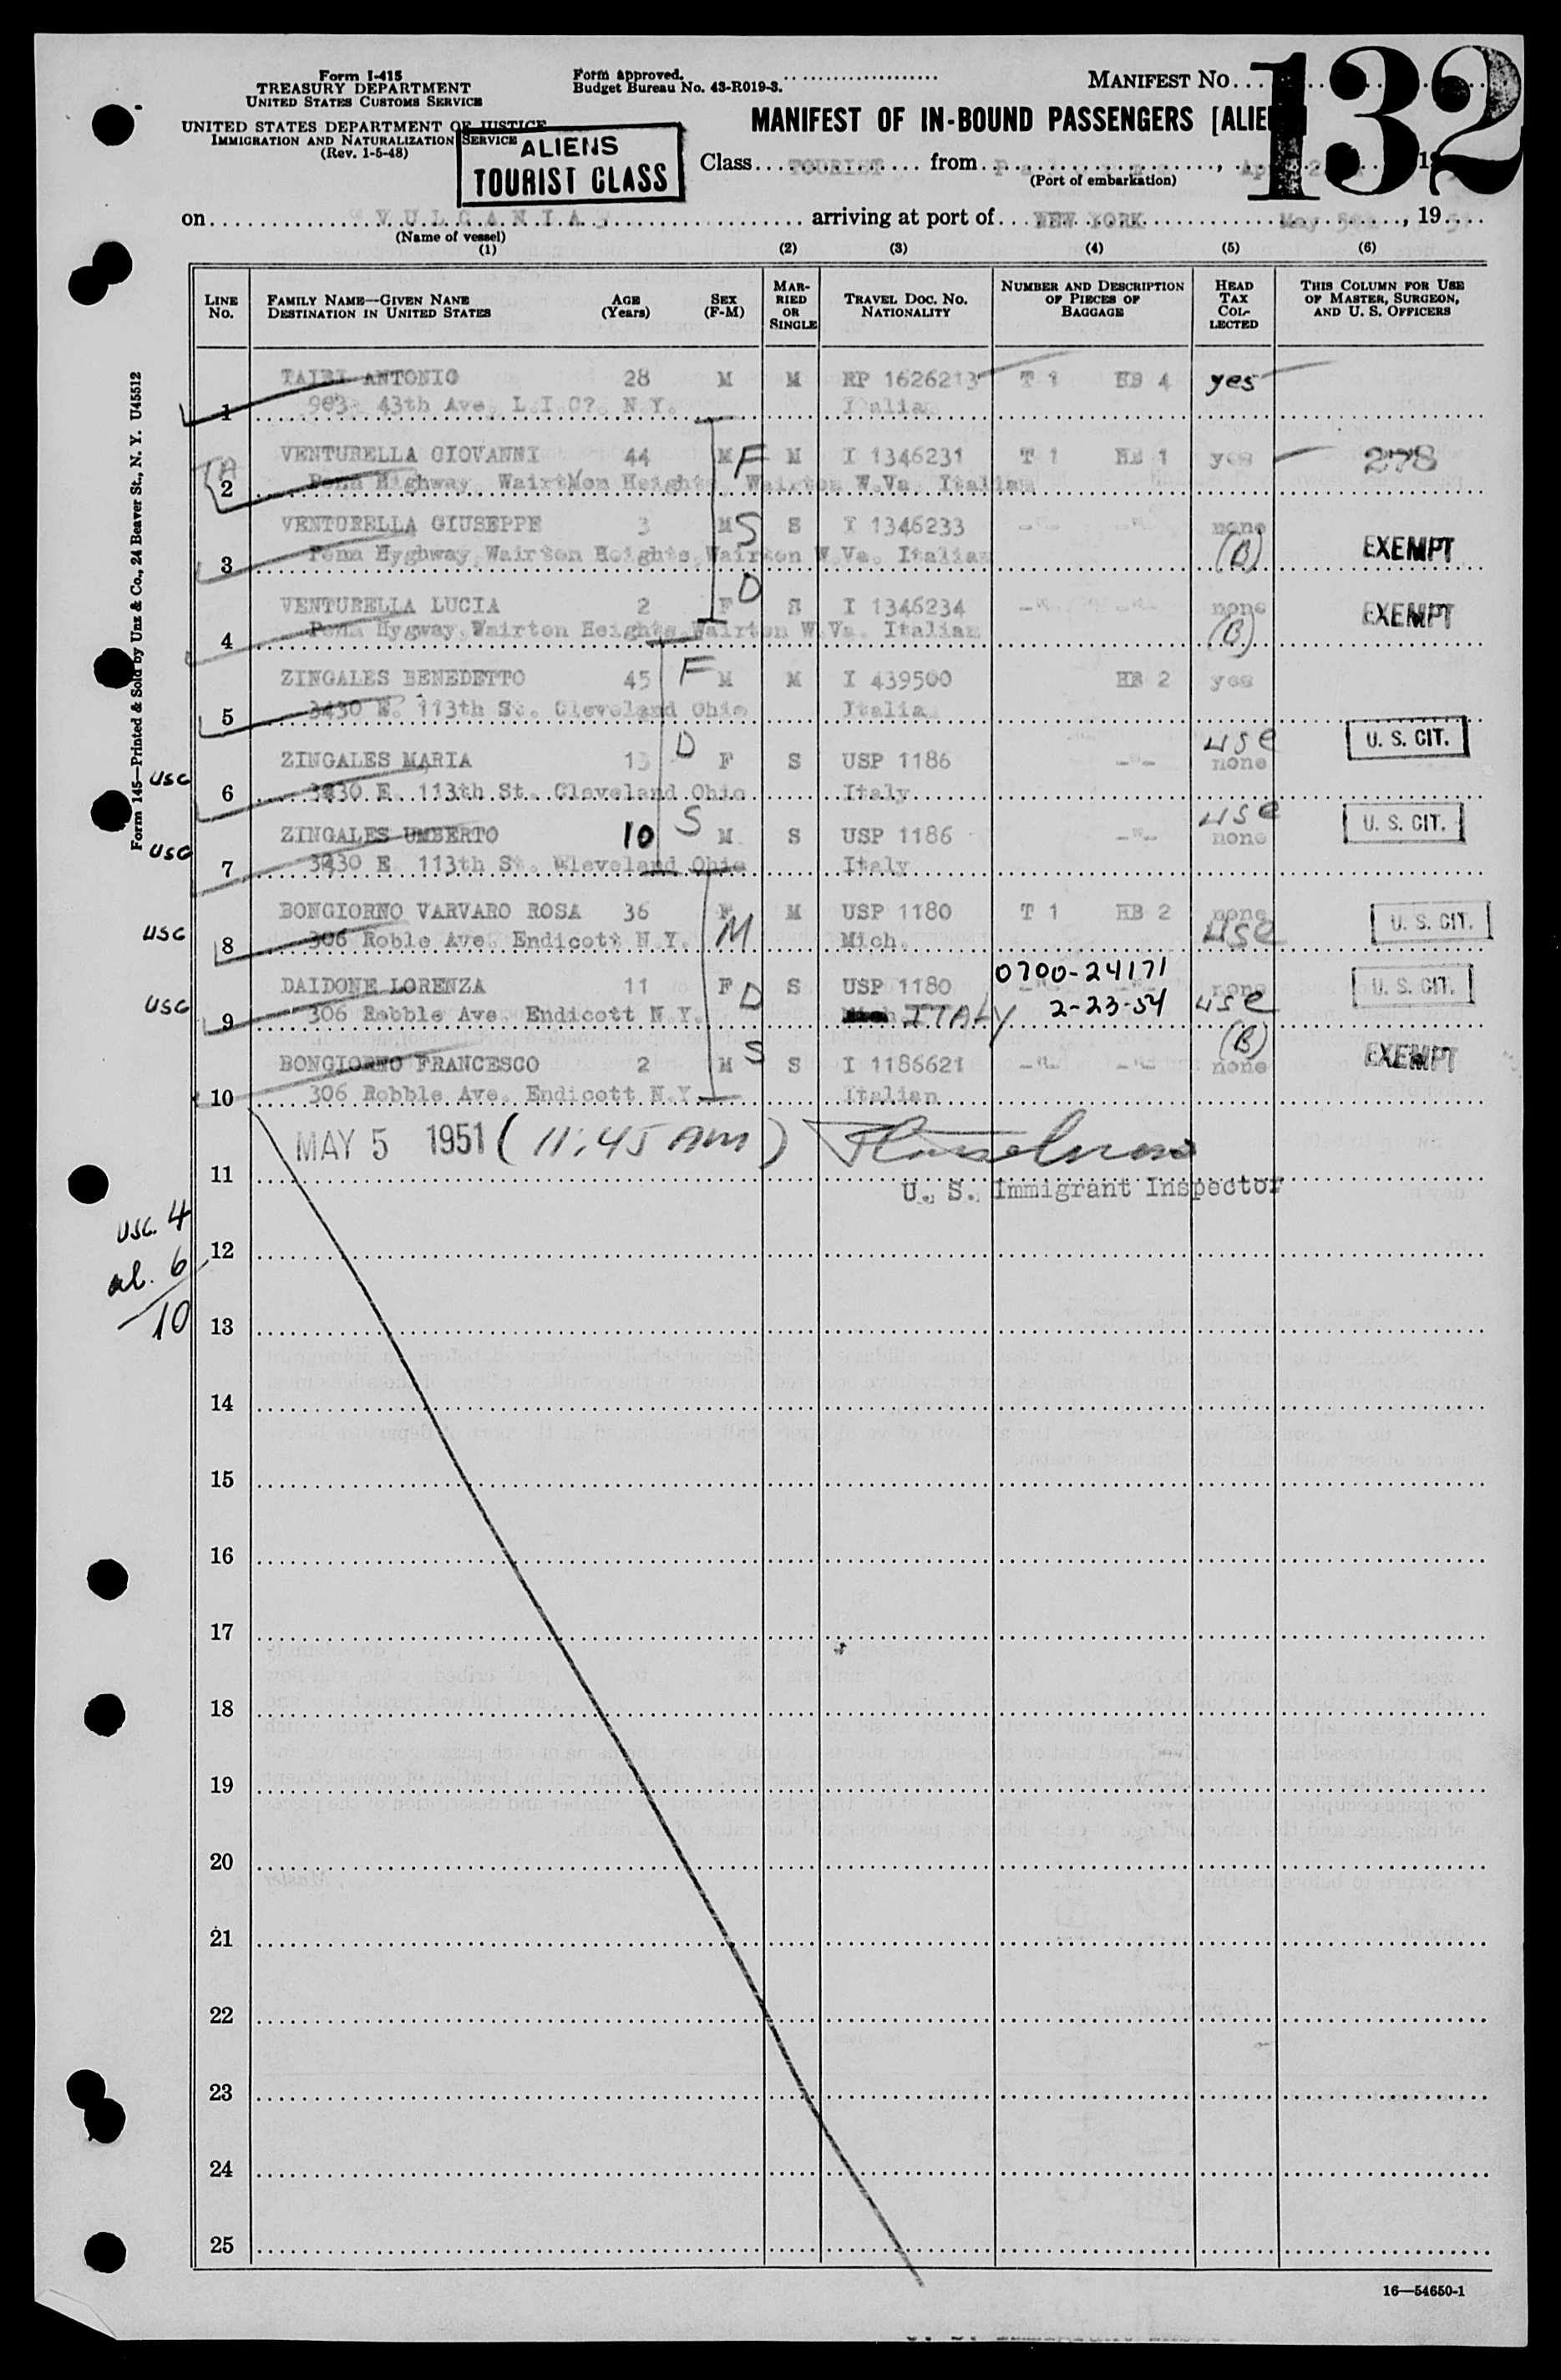 Form I-415
TREASURY DEPARTMENT
UNITED STATES CUSTOMS SERVICE
UNITED STATES DEPARTMENT OF JUSTICE
IMMIGRATION AND NATURALIZATION SERVICE
(Rev. 1-5-48)
Form approved.
Budget Bureau No. 43-R019-3.
MANIFEST NO.
132
MANIFEST OF IN-BOUND PASSENGERS [ALIE
ALIENS
TOURIST CLASS
Class TOURIST from
(Port of embarkation)
on VULCANIA arriving at port of NEW YORK May 19
(Name of vessel)
(1) (2) (3) (4) (5) (6)
LINE NO. FAMILY NAME—GIVEN NANE DESTINATION IN UNITED STATES AGE (Years) SEX (F-M) MARRIED OR SINGLE TRAVEL DOC. NO. NATIONALITY NUMBER AND DESCRIPTION OF PIECES OF BAGGAGE HEAD TAX COLLECTED THIS COLUMN FOR USE OF MASTER, SURGEON, AND U. S. OFFICERS
TAIBI ANTONIO 28 M M RP 1626213 T 1 HB 4 yes
1 903 43th Ave. L.I.C?. N.Y. Italian
VENTURELLA GIOVANNI 44 M F M I 1346231 T 1 HB 1 yes 278
2 Penn Highway, Heights, Wairton W.Va. Italian
VENTURELLA GIUSEPPE 3 M S S I 1346233 -"- -"- none EXEMPT
3 Penn Hyghway, Wairton Heights, Wairton W.Va. Italian (B)
VENTURELLA LUCIA 2 F D S I 1346234 -"- -"- none EXEMPT
4 Penn Hygway, Wairton Heights, Wairton W.Va. Italian (B)
ZINGALES BENEDETTO 45 F M M I 439500 HB 2 yes
5 3430 E. 113th St. Cleveland Ohio Italian
usc ZINGALES MARIA 13 D F S USP 1186 -"- none usc U. S. CIT.
6 3430 E. 113th St. Cleveland Ohio Italy
usc ZINGALES UMBERTO 10 S M S USP 1186 -"- none usc U. S. CIT.
7 3430 E. 113th St. Wleveland Ohio Italy
usc BONGIORNO VARVARO ROSA 36 F M M USP 1180 T 1 HB 2 none usc U. S. CIT.
8 306 Roble Ave. Endicott N.Y. Mich.
0700-24171
usc DAIDONE LORENZA 11 F D S USP 1180 none usc U. S. CIT.
9 306 Robble Ave. Endicott N.Y. ITALY 2-23-54
BONGIORNO FRANCESCO 2 M S S I 1186621 -"- -"- none (B) EXEMPT
10 306 Robble Ave. Endicott N.Y. Italian
MAY 5 1951 (11:45 AM)
11
U. S. Immigrant Inspector
usc. 4
al. 6
10
12
13
14
15
16
17
18
19
20
21
22
23
24
25
16—54650-1
Form 145—Printed & Sold by Unz & Co., 24 Beaver St., N. Y. U45512